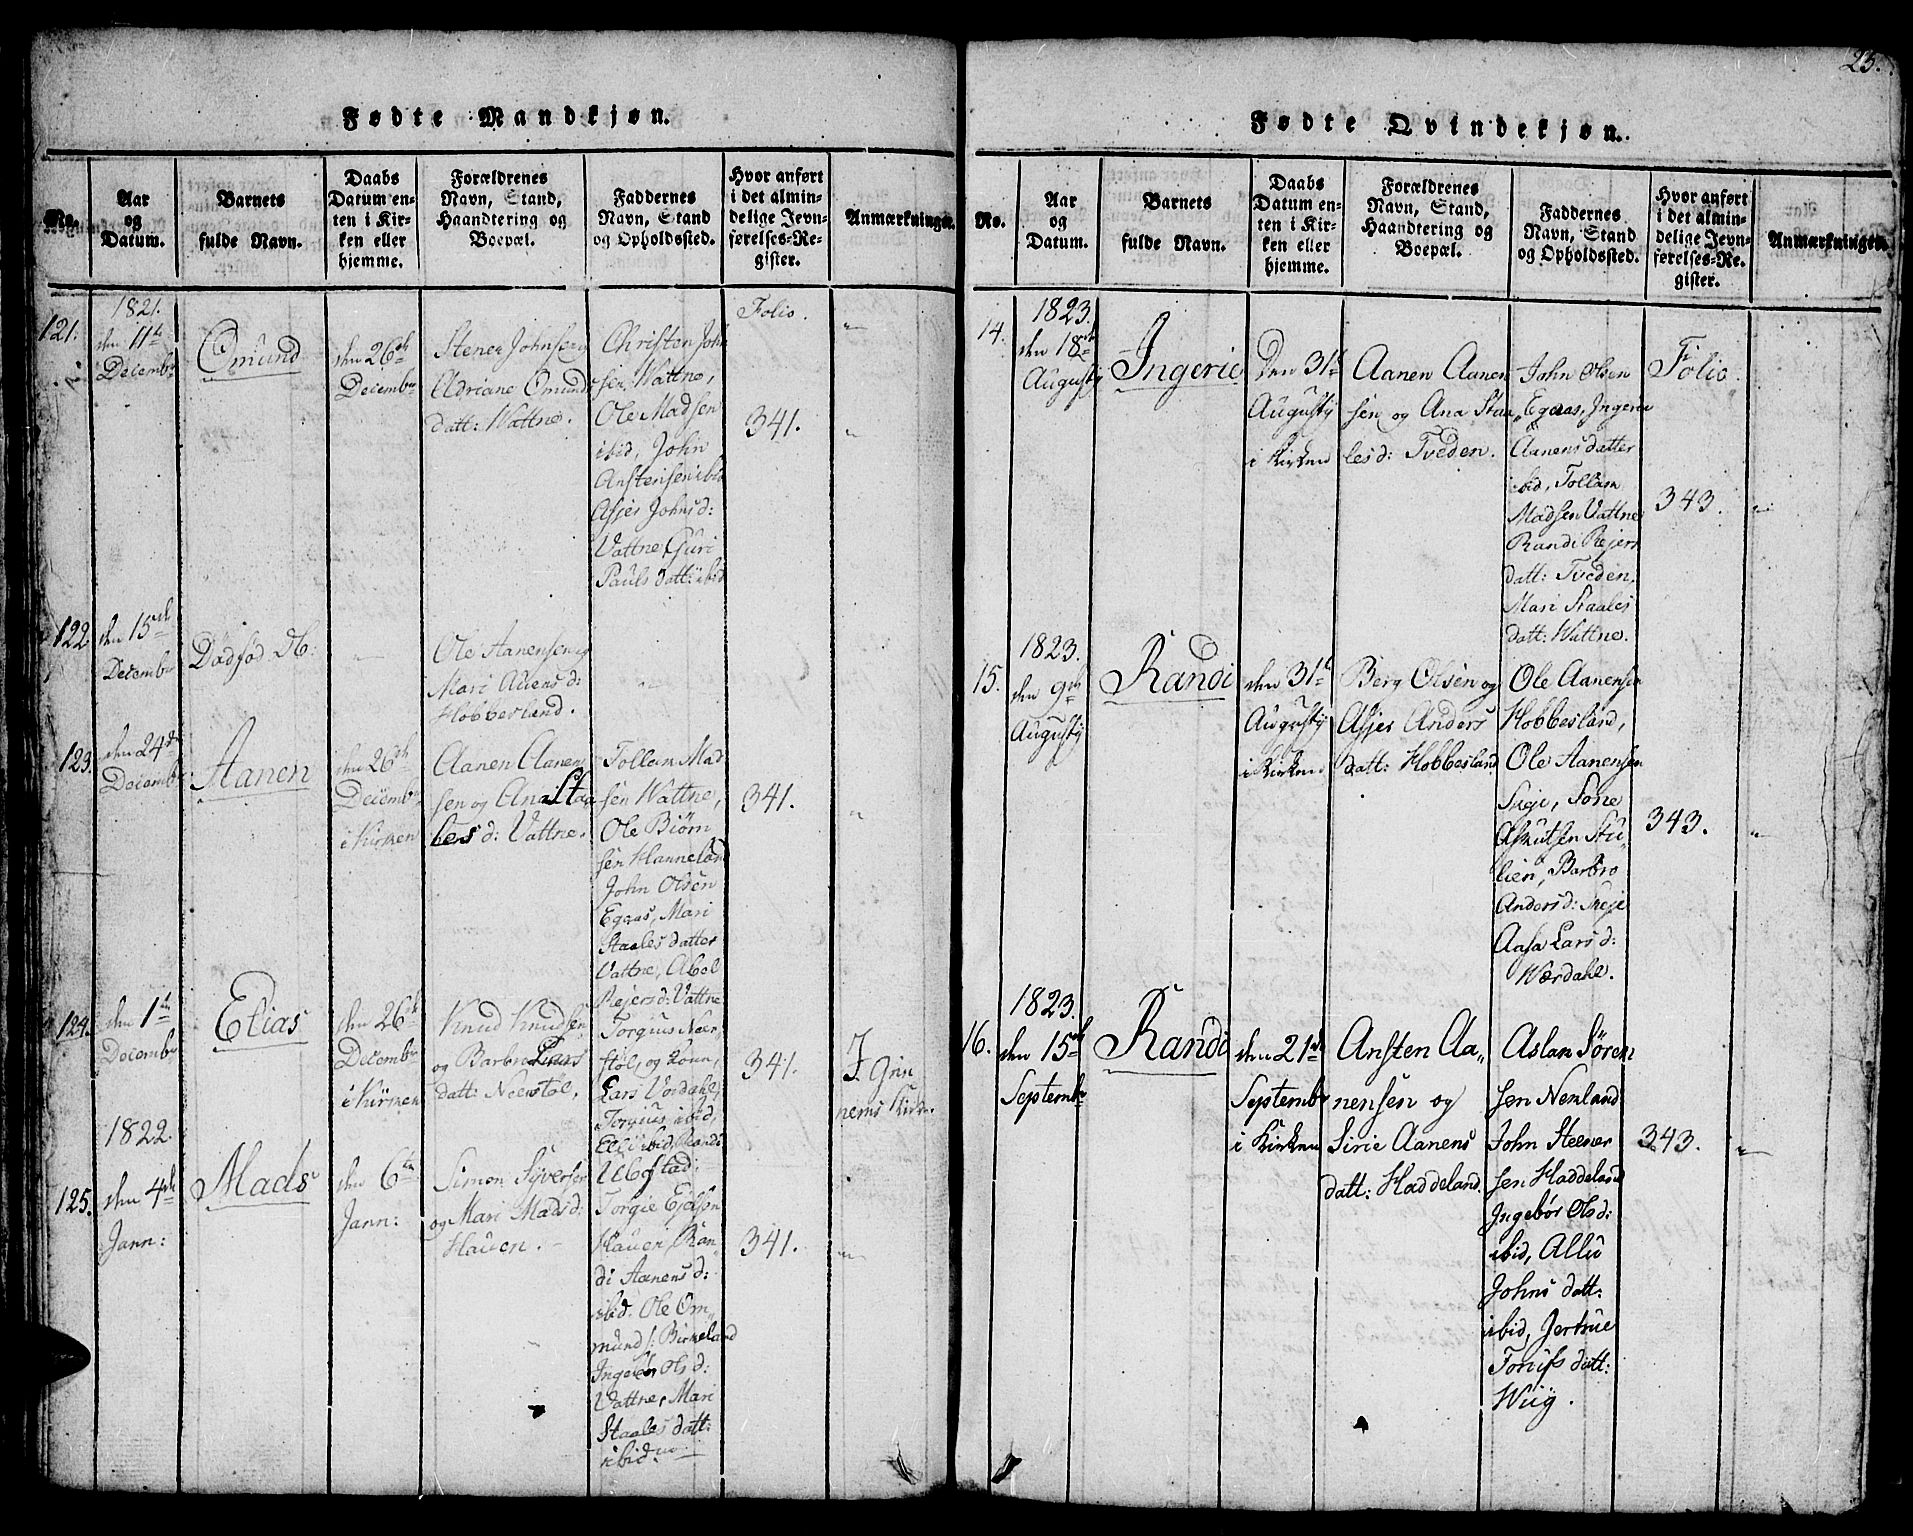 Fødte Mandkjøn.
No.
Aar
og
Datum.
Barnets
fulde Navn.
Daabs
Datum en-
ten i Kir-
ken eller
hjemme.
Forældrenes
Navn, Stand,
Haandtering og
Boepæl.
Faddernes
Navn, Stand
og Opholdssted.
Hvor anført
i det almin-
delige Jevn-
førelses-Re-
gister.
Anmærkninger.
121.
1821.
den 11te
Decembr
Omund
den 26de
Decembr
Stener Johnsen og
Adriane Omunds
datt: Wattne.
Christen John
sen Wattne,
Ole Madsen
ibid, John
Anstensen ibid
Asjer Johnsd:
Vattne, Guri
Pauls datt: ibid
Folio.
341.
"
"
122.
den 15de
Decembr
Dødfød
"
Ole Aanensen og
Mari Auensd:
Hobbesland.
"
123.
den 24de
Decembr
Aanen
den 26de
Decembr
i Kirken
Aanen Aanen
sen og Ana Staa
lesd: Vattne.
Tollem Mad
sen Wattne,
Ole Biørn
sen Hanneland
John Olsen
Egaas, Mari
Staales datter
Vattne, Abel
Rejersd: Vattne
341.
"
124.
den 1te
Decembr
Elias
den 26de
Decembr
i Kirken
Knud Knudsen
og Barbro Lars
datt: Neerstøl,
Torgius Neer
støl, og Kone,
Lars Vordahl,
Torgius ibid,
Elli ibid, Randi
Ubostad:
341.
I Grin
nems Kirke.
1822.
125.
den 4de
Jann:
Mads
den 6te
Jann:
Simon Syverses
og Mari Madsd:
Hauen.
Torgie Ejelsen
Hauen, Ran
di Aanensd:
ibid. Ole Om
mund s: Birkeland
Ingebor Olsd:
Vattne, Mari
Staales datt:
ibid.
341.
"
23.
Fødte Qvindekjøn.
No.
Aar
og
Datum.
Barnets
fulde Navn.
Daabs
Datum en-
ten i Kir-
ken eller
hjemme.
Forældrenes
Navn, Stand,
Haandtering og
Boepæl.
Faddernes
Navn, Stand
og Opholdssted.
Hvor anført
i det almin-
delige Jevn-
førelses-Re-
gister.
Anmærkninger.
14.
1823.
den 18de
Augusty
Ingerie
Den 31te
Augusty
i Kirken
Aanen Aanen
sen og Ana Staa„
lesd: Tveden.
John Olsen
Egaas, Ingerie
Aanens datter
ibid, Tollem
Madsen Vattne
Randi Rejers
datt: Tveden,
Mari Staales
datt: Wattne.
Folio.
343.
"
15.
1823.
den 9de
Augusty
Randi
den 31te
Augusty
i Kirken
Berg Olsen og
Asjer Anders
datt: Hobbesland
Ole Aanensen
Hobbesland,
Ole Aanensen
Skeje, Tone
Askutsen Stu„
lien, Barbro
Andersd: Skeje
Aasa Larsd:
Wærdahl.
343.
"
16.
1823.
den 15de
Septembr
Randi
den 21de
Septembr
i Kirken
Ansten Aa„
nensen og
Sirie Aanens
datt: Haddeland.
Aslan Sören
sen Nenland
John Steener
sen Haddeland
Ingebør Olsd:
ibid, Allu
Johns datt:
ibid, Jertrue
Tonises datt:
Wiig.
343.
"